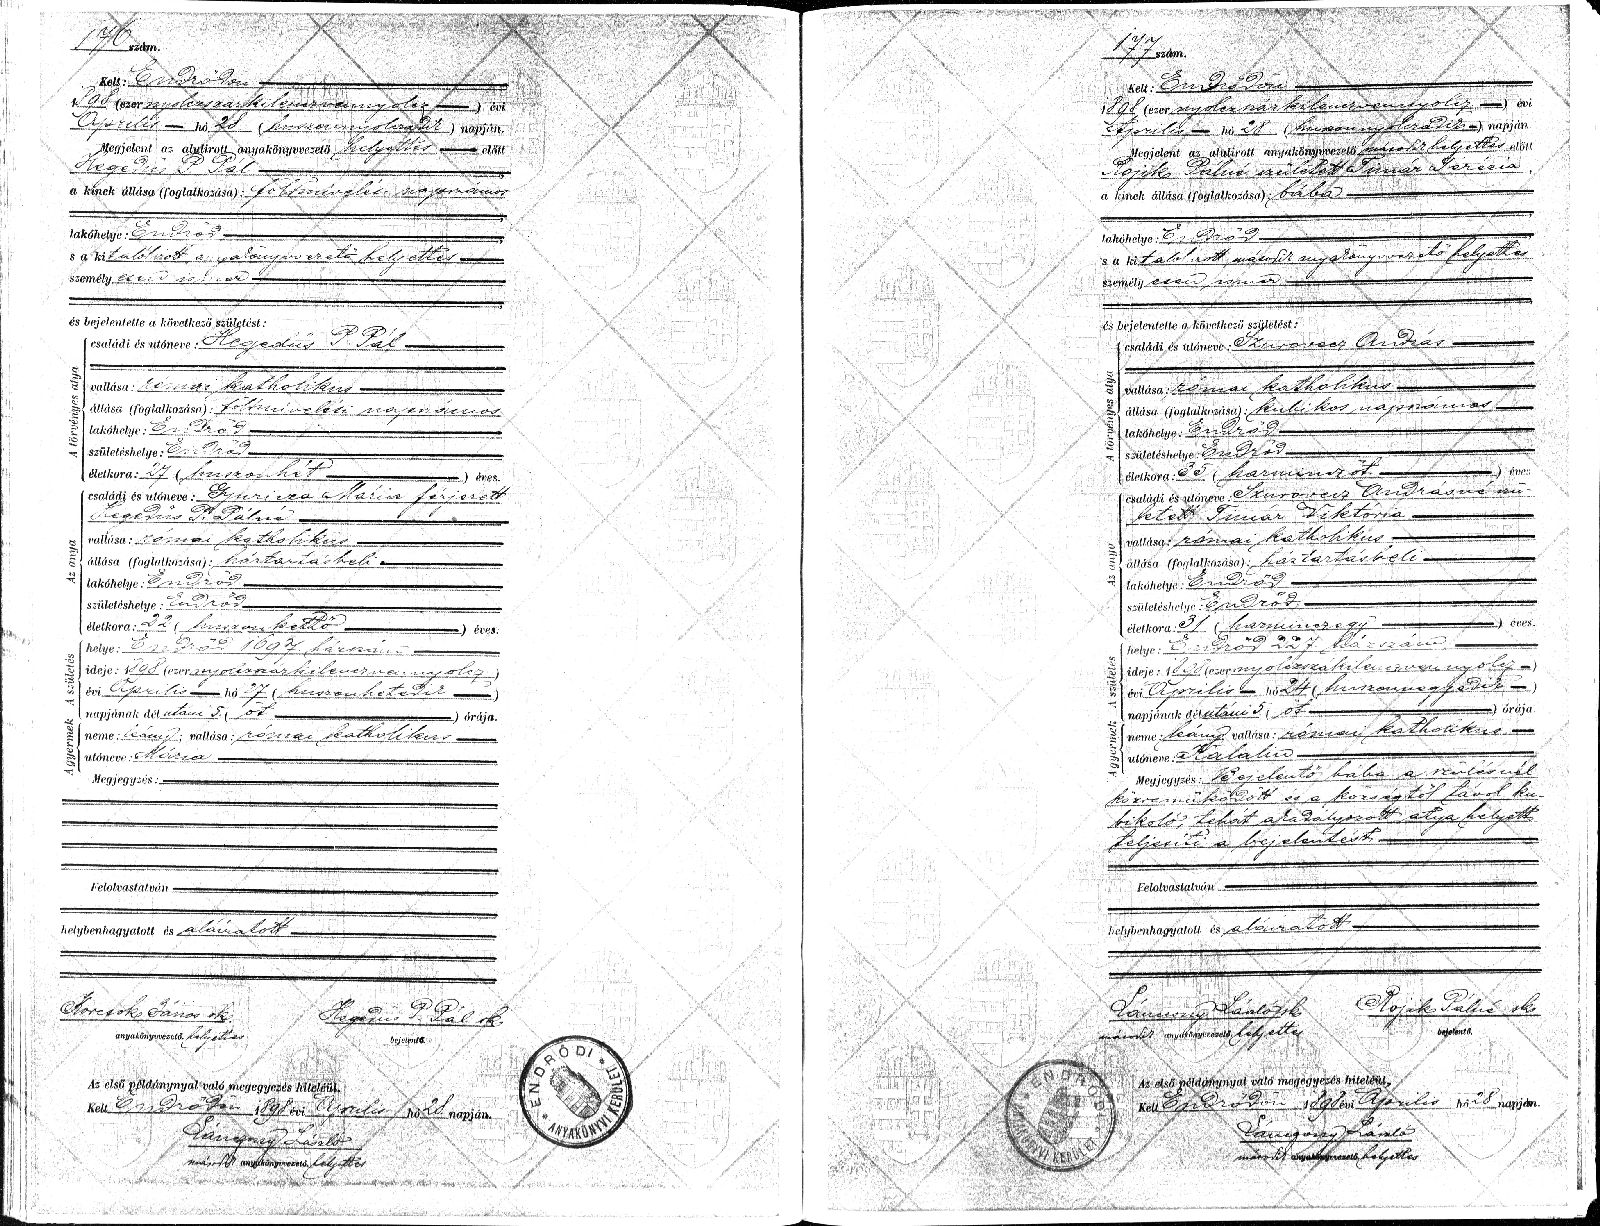 176 szám.
Kelt: Endrődön
1898 (ezer nyolczszázkilenczvennyolcz) évi
Április hó 28 (huszonnyolczadik) napján.
Megjelent az alulirott anyakönyvvezető helyettes előtt
Hegedüs P. Pál
a kinek állása (foglalkozása): földmüvelési napszámos
lakóhelye: Endrőd
s a kit alólirott anyakönyvvezető helyettes
személyesen ismer
és bejelentette a következő születést:
A törvényes atya
családi és utóneve: Hegedüs P. Pál
vallása: római katholikus
állása (foglalkozása): földmüvelési napszámos
lakóhelye: Endrőd
születéshelye: Endrőd
életkora: 27 (huszonhét) éves.
Az anya
családi és utóneve: Gyuricza Mária férjezett
Hegedüs P. Pálné
vallása: római katholikus
állása (foglalkozása): háztartásbeli
lakóhelye: Endrőd
születéshelye: Endrőd
életkora: 22 (huszonkettő) éves.
A születés
helye: Endrőd 1697 házszám
ideje: 1898 (ezer nyolczszázkilenczvennyolcz)
évi Április hó 27 (huszonhetedik)
napjának délutáni 5 (öt) órája.
A gyermek
neme: leány; vallása: római katholikus
utóneve: Mária
Megjegyzés:
Felolvastatván
helybenhagyatott és aláiratott
Korcsok János sk. Hegedüs P. Pál sk.
anyakönyvvezető helyettes bejelentő.
Az első példánynyal való megegyezés hiteléül.
Kelt Endrődön 1898 évi Április hó 28 napján.
László
második anyakönyvvezető helyettes
ENDRŐDI ANYAKÖNYVI KERÜLET
177 szám.
Kelt: Endrődön
1898 (ezer nyolczszázkilenczvennyolcz) évi
Április hó 28 (huszonnyolczadik) napján
Megjelent az alulirott anyakönyvvezető másodikhelyettes előtt
Rojik Pálné született Timár Terézia,
a kinek állása (foglalkozása): bába
lakóhelye: Endrőd
s a kit alólirott második anyakönyvvezető helyettes
személyesen ismer
és bejelentette a következő születést:
A törvényes atya
családi és utóneve: Szurovecz András
vallása: római katholikus
állása (foglalkozása): kubikos napszámos
lakóhelye: Endrőd
születéshelye: Endrőd
életkora: 35 (harminczöt) éves
Az anya
családi és utóneve: Szurovecz Andrásné szü-
letett Timár Viktória
vallása: római katholikus
állása (foglalkozása): háztartásbeli
lakóhelye: Endrőd
születéshelye: Endrőd
életkora: 31 (harminczegy) éves.
A születés
helye: Endrőd 227 házszám
ideje: 1898 (ezer nyolczszázkilenczvennyolcz)
évi Április hó 24 (huszonnegyedik)
napjának délutáni 5 (öt) órája
A gyermek
neme: leány; vallása: római katholikus
utóneve: Katalin
Megjegyzés: Bejelentő bába a szülésnél
közremüködött és a községtől távol ku-
bikoló, tehát akadályozott atya helyett
teljesiti a bejelentést.
Felolvastatván
helybenhagyatott és aláiratott
László sk. Rojik Pálné sk.
második anyakönyvvezető helyettes bejelentő.
Az első példánynyal való megegyezés hiteléül,
Kelt Endrődön 1898 évi Április hó 28 napján.
László
második anyakönyvvezető helyettes
ENDRŐDI ANYAKÖNYVI KERÜLET